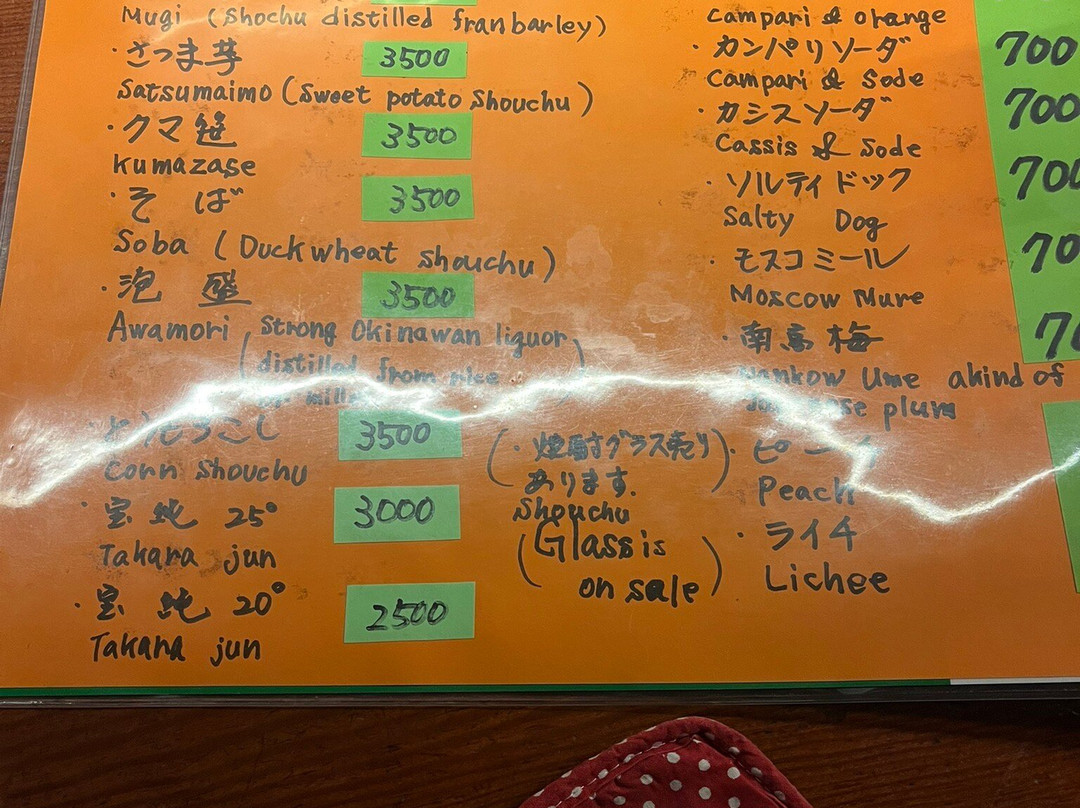 Mugi (Shochu distilled franbarley)
・さつま芋 3500
Satsumaimo (Sweet potato Shouchu)
・クマ笹 3500
kumazase
・そば 3500
Soba (Duckwheat shouchu)
・泡盛 3500
Awamori (Strong Okinawan liquor
distilled from rice
or mille
とうもろこし 3500
Conn Shouchu
・宝純 25° 3000
Takara jun
・宝純 20° 2500
Takara jun
(・焼酎グラス売り
あります.)
Shouchu
(Glass is
on sale)
Campari & orange
・カンパリソーダ 700
Campari & Sode
・カシスソーダ 700
Cassis & Sode
・ソルティドック 700
Salty Dog
・モスコミール 70
Moscow Mure
・南高梅 70
Nankow Ume akind of
plum
・ピーチ
Peach
・ライチ
Lichee